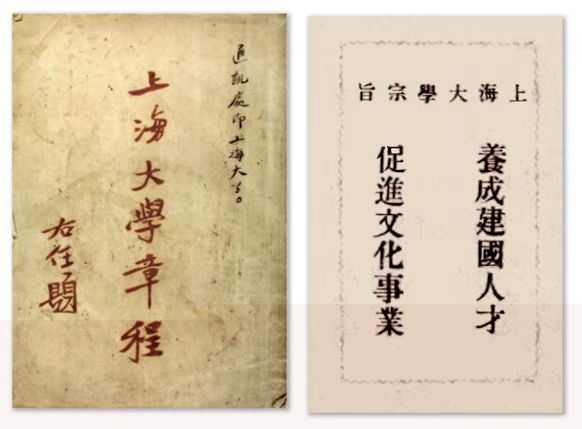 通訊處即上海大學。
上海大學章程
右任題
上海大學宗旨
養成建國人才
促進文化事業